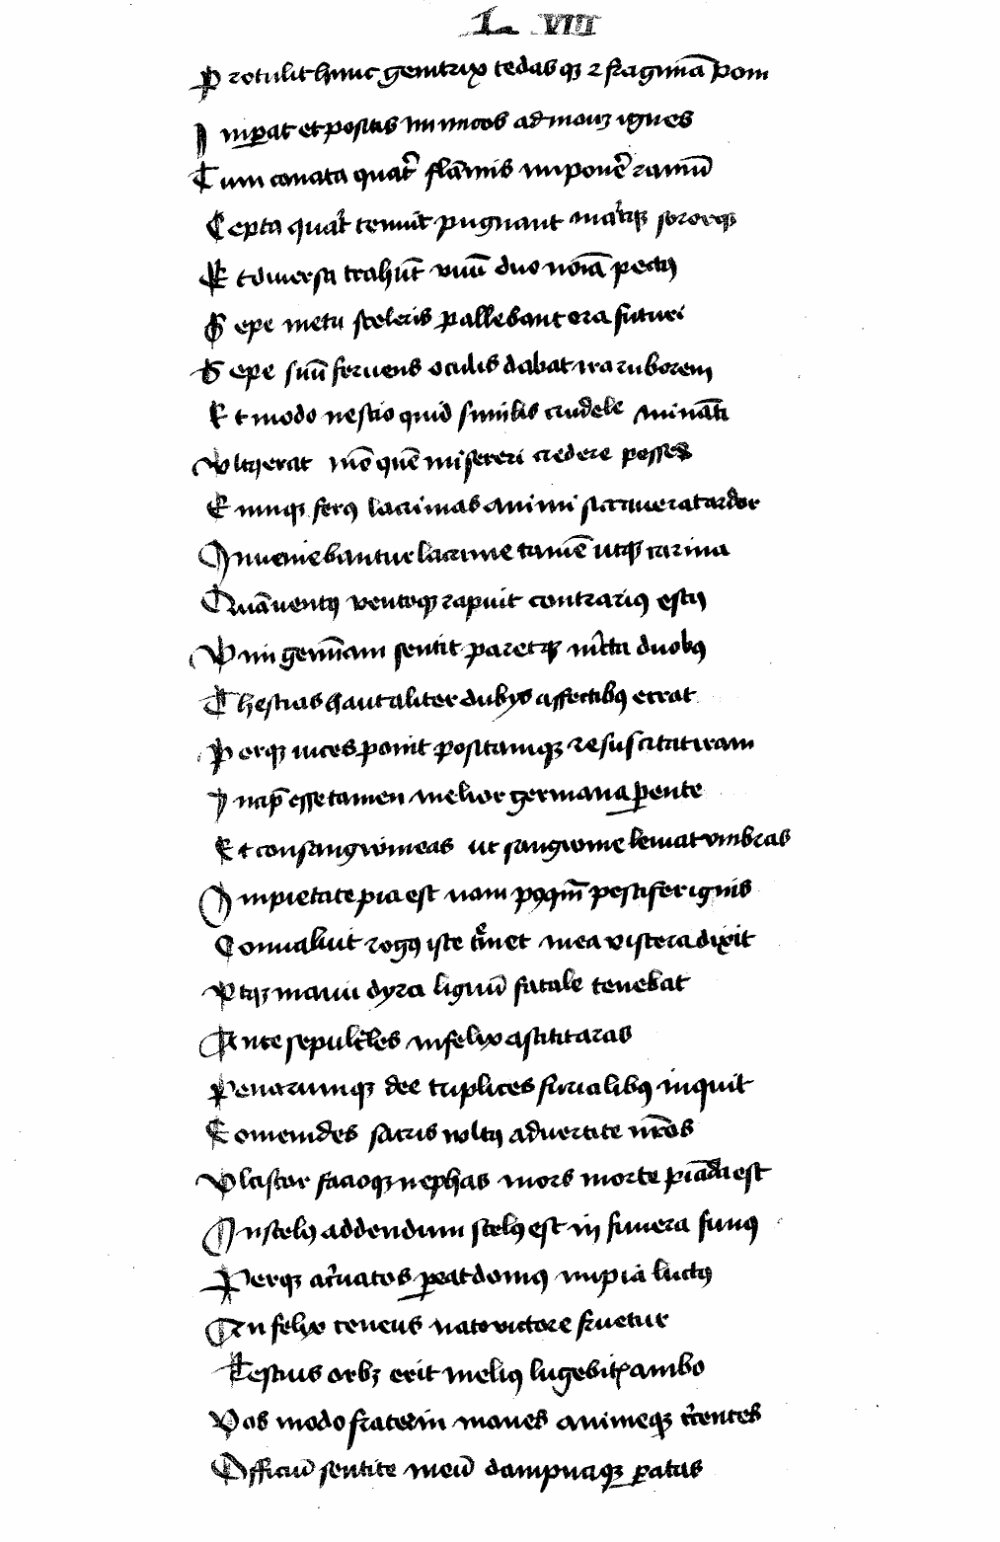 L VIII
P rotulit hunc genitrix tedasqꝫ ⁊ fragmīa poni
I mꝑat et positis inimicos admouꝫ ignes
T um conata quat̉ flāmis imponẽ ramū
C epta quat̉ tenuit pugnant mat̉qꝫ sororqꝫ
E t diuersa trahūt vnū duo noīa pectꝰ
S epe metu sceleris pallebant ora futuri
S epe suū feruens oculis dabat ira ruborem
E t modo nescio quid similis crudele minātı
V ltꝰ erat mō quē misereri credere posses
C unqꝫ ferꝰ lacrimas animi siccauerat ardor
I nueniebantur lacrime tamē utqꝫ carina
Q uā uentꝰ uentoqꝫ rapuit contrariꝰ estꝰ
V im gemīam sentit paretqꝫ īcẽta duobꝰ
T hestias haut aliter dubijs affectibꝰ errat
P erqꝫ uices ponit positamqꝫ resuscitat iram
I ncıp̄ esse tamen melior germana ꝑente
E t consanguineas ut sanguine leniat vmbras
I mpietate pia est nam pꝰqm̄ pestifer ignis
C onualuit rogꝰ iste c̉met mea viscera dixit
V tqꝫ manu dyra lignū fatale tenebat
A nte sepulc̉les infelix astitit aras
P enarumqꝫ dee triplices furialibꝰ inquit
E omenides sacris voltꝰ aduertite nr̄os
V lciscor facioqꝫ nephas mors morte piāda est
I n scelꝰ addendum scelꝰ est in funera funꝰ
P erqꝫ ac̉uatos ꝑeat domꝰ impia luctꝰ
A n felix ceneus nato victore fruetur
T estius orbꝫ erit meliꝰ lugebitꝭ ambo
V os modo fraterni manes animeqꝫ r̉centes
O fficiū sentite meū dampnaqꝫ ꝑatas